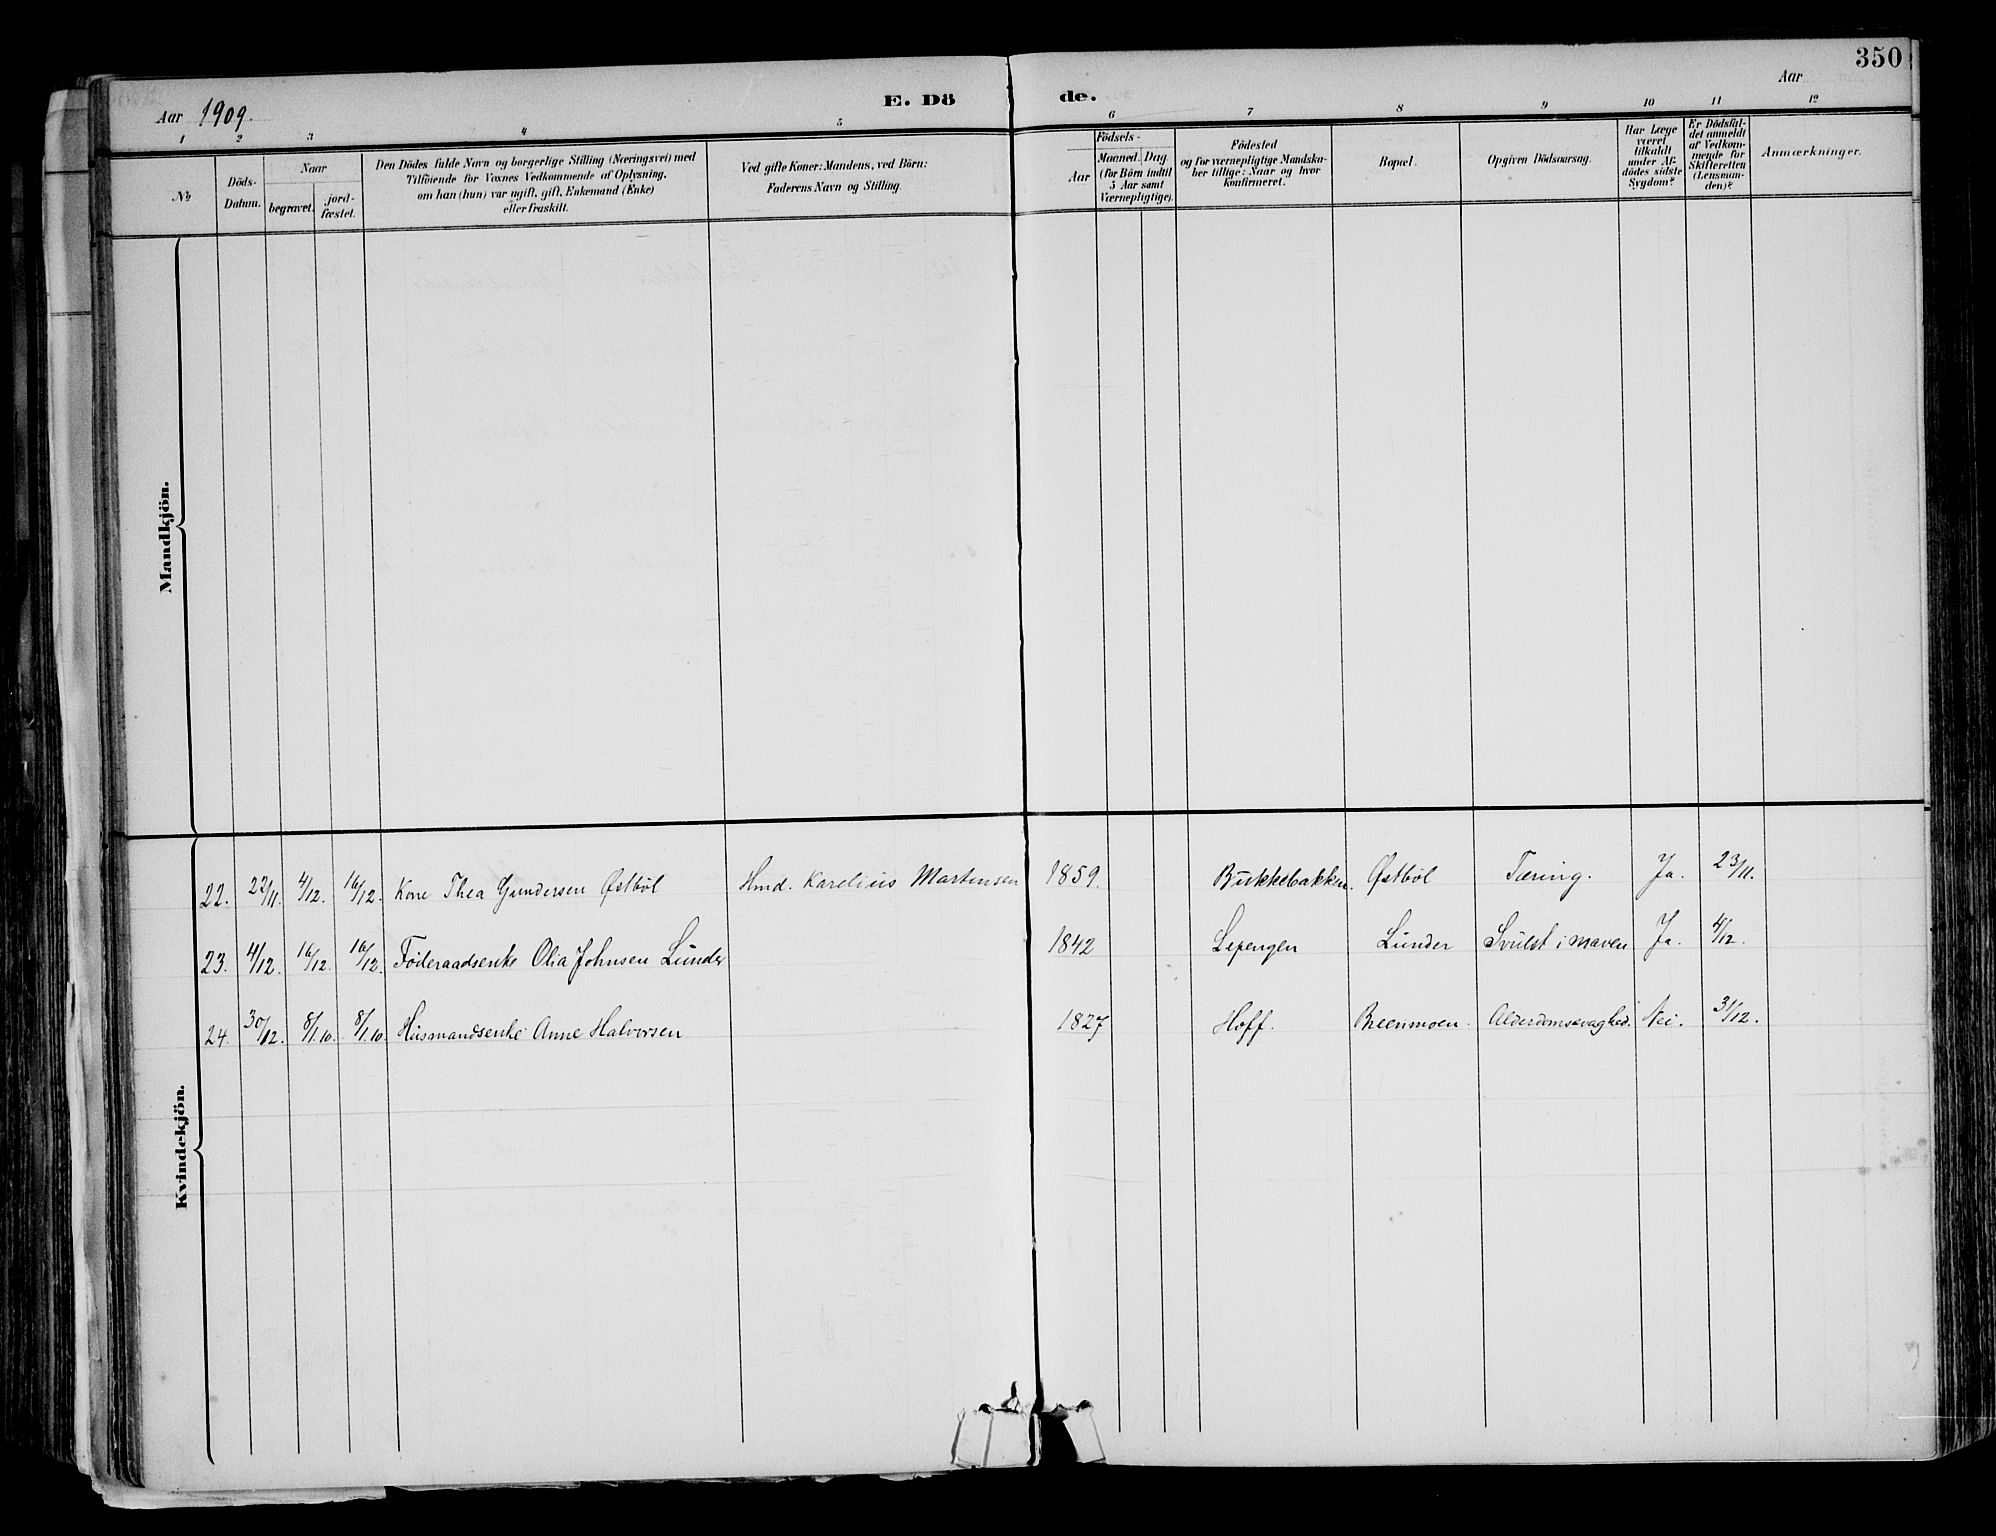 350
Aar 1909.
E. Dö de.
Aar
1 2 3 4 5 6 7 8 9 10 11 12
No
Döds-Datum.
Naar
begravet.
jord-fæstet.
Den Dödes fulde Navn og borgerlige Stilling (Næringsvei) med
Tilföiende for Voxnes Vedkommende af Oplysning,
om han (hun) var ugift, gift, Enkemand (Enke)
eller fraskilt.
Ved gifte Koner: Mandens, ved Börn:
Faderens Navn og Stilling.
Födsels-
Aar
Maaned. Dag
(for Börn indtil
5 Aar samt
Værnepligtige).
Födested
og for værnepligtige Mandska-
ber tillige: Naar og hvor
konfirmeret.
Bopæl.
Opgiven Dödsaarsag.
Har Læge
været
tilkaldt
under Af-
dödes sidste
Sygdom?
Er Dödsfal-
det anmeldt
af Vedkom-
mende for
Skifteretten
(Lensman-
den)?
Anmærkninger.
Mandkjön.
Kvindekjön.
22. 22/11. 4/12. 16/12. Kone Thea Gundersen Østbøl Hmd. Karelius Martinsen 1859. Bukkebakken. Østbøl Tæring. Ja. 23/11.
23. 4/12. 16/12. 16/12. Føderaadsenke Olia Johnsen Lunder 1842 Lepengen Lunder Svulst i maven Ja. 4/12.
24. 30/12. 8/1.10. 8/1.10. Husmandsenke Anne Halvorsen 1827 Hoff. Breenmoen. Alderdomssvaghed. Nei. 31/12.